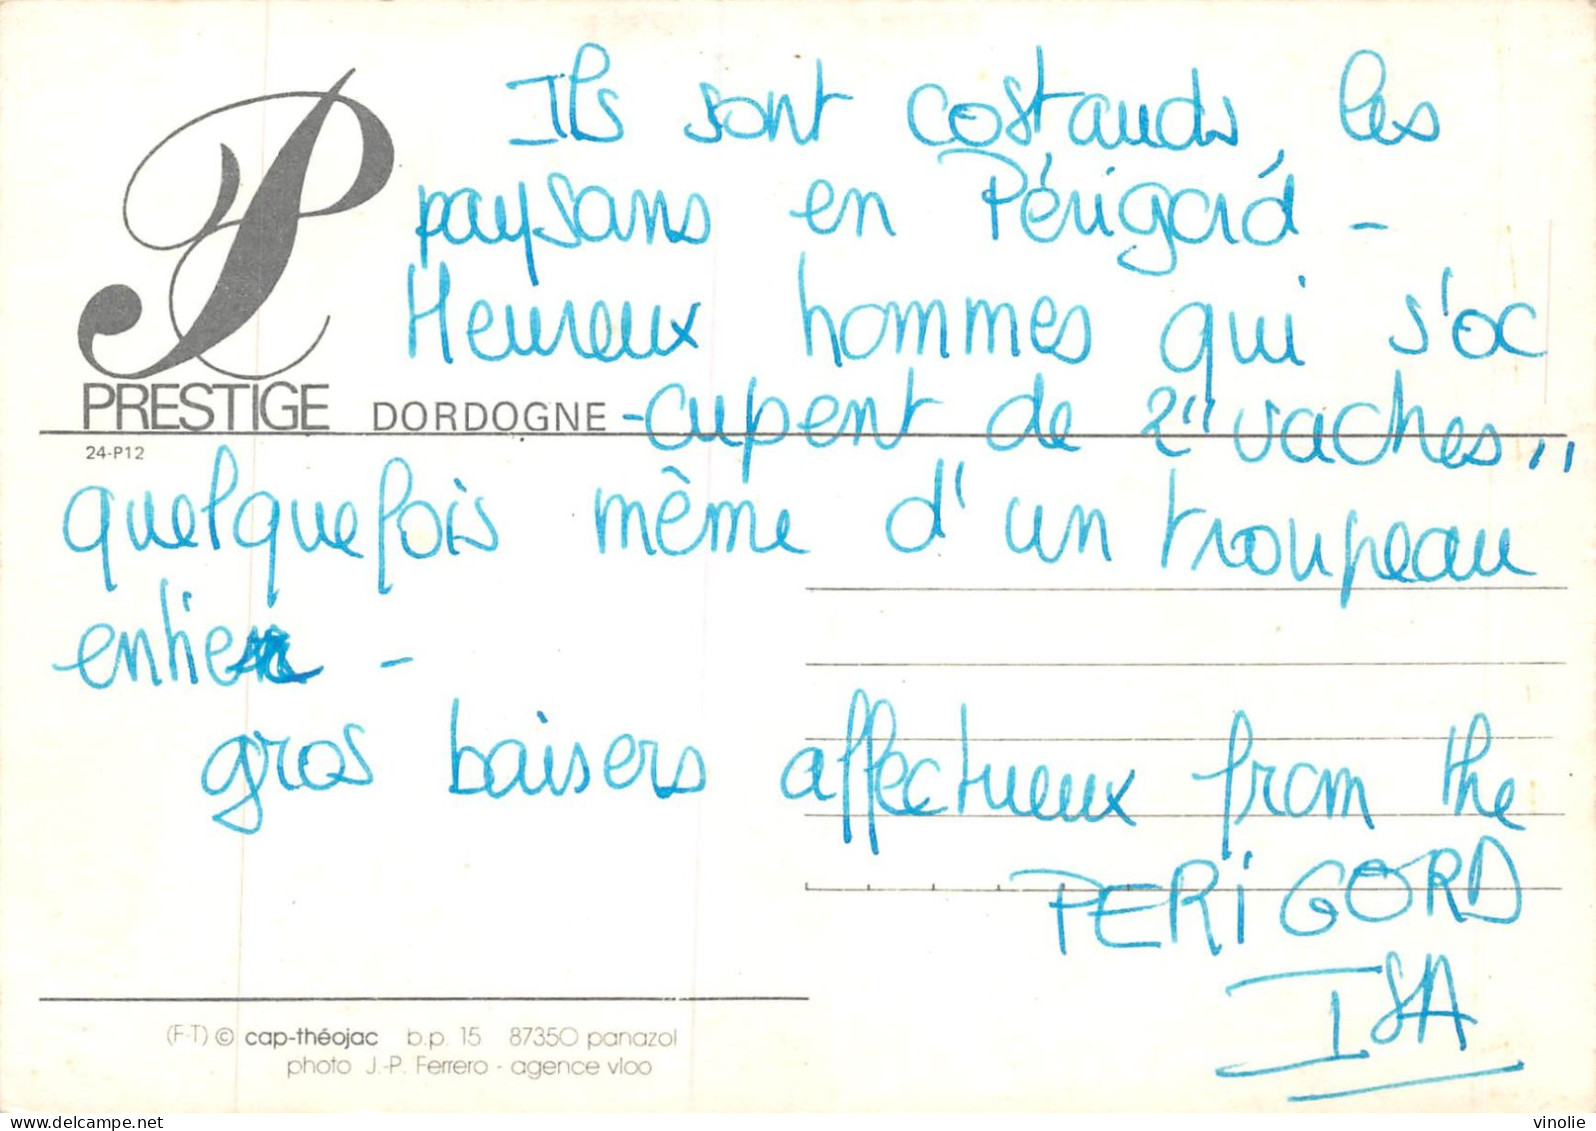 Ils sont costauds, les
paysans en Périgord -
Heureux hommes qui s'oc
PRESTIGE DORDOGNE
-cupent de 2 "vaches"
24-P12
quelquefois même d'un troupeau
entier -
gros baisers affectueux from the
PERiGORD
ISA
(F-T) © cap-théojac b.p. 15 87350 panazol
photo J.-P. Ferrero - agence vloo
delcampe.net
vinolie